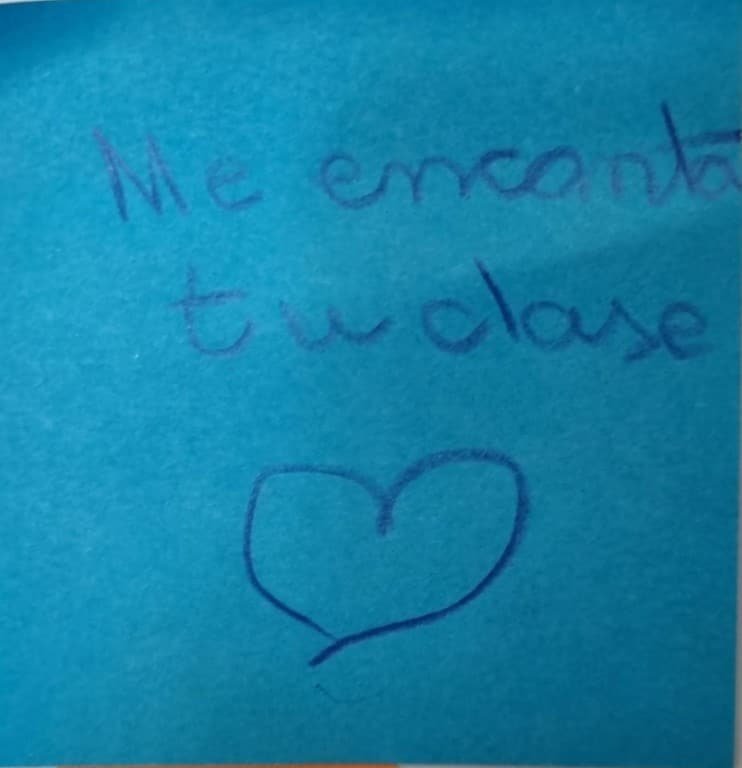 Me encanta
tu clase